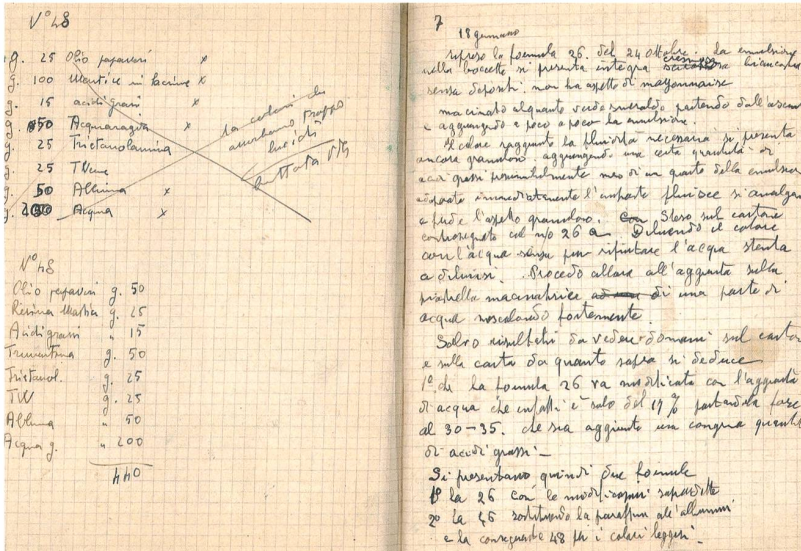 N° 48
g. 25 Olio papaveri x
g. 100 Mastice in x
g. 15 acidi grassi x
g. 50 Acquaragia x
g. 25 Trietanolamina
g. 25 TW
g. 50 Albumina x
g. 200 Acqua x
la colori che
troppo
lucidi
buttata via
N° 48
Olio papaveri g. 50
Resina Mastice g. 25
Acidi grassi " 15
Trementina g. 50
Trietanol. g. 25
TW g. 25
Albumina " 50
Acqua g. " 200
440
7
18 gennaio
ripreso la formula 26. del 24 ottobre. La emulsione
nella boccetta si presenta integra cremosa biancastra
senza depositi. non ha aspetto di mayonnaise
macinato alquanto verde smeraldo partendo dall'
e aggiungendo a poco a poco la emulsione.
Il colore raggiunta la fluidità necessaria si presenta
ancora granuloso. aggiungendo una certa quantità di
acidi grassi possibilmente meno di un quarto della emulsione
adoperata immediatamente l'impasto fluisce si amalgama
e perde l'aspetto granuloso. Con Steso sul cartone
contrassegnato col n/o 26 a Diluendo il colore
con l'acqua senza pur rifiutare l'acqua stenta
a diluirsi. Procedo allora all'aggiunta sulla
piastrella macinatrice di una parte di
acqua mescolando fortemente
Salvo risultati da vedere domani sul cartone
e sulla carta da quanto sopra si deduce
1° che la formula 26 va modificata con l'aggiunta
di acqua che infatti è solo del 19% portandola forse
al 30-35. che sia aggiunta una congrua quantità
di acidi grassi -
Si presentano quindi due formule
1° la 26 con le modificazioni suddette
2° la 46 sostituendo la paraffina all'
e la conseguente 48 per i colori leggeri -